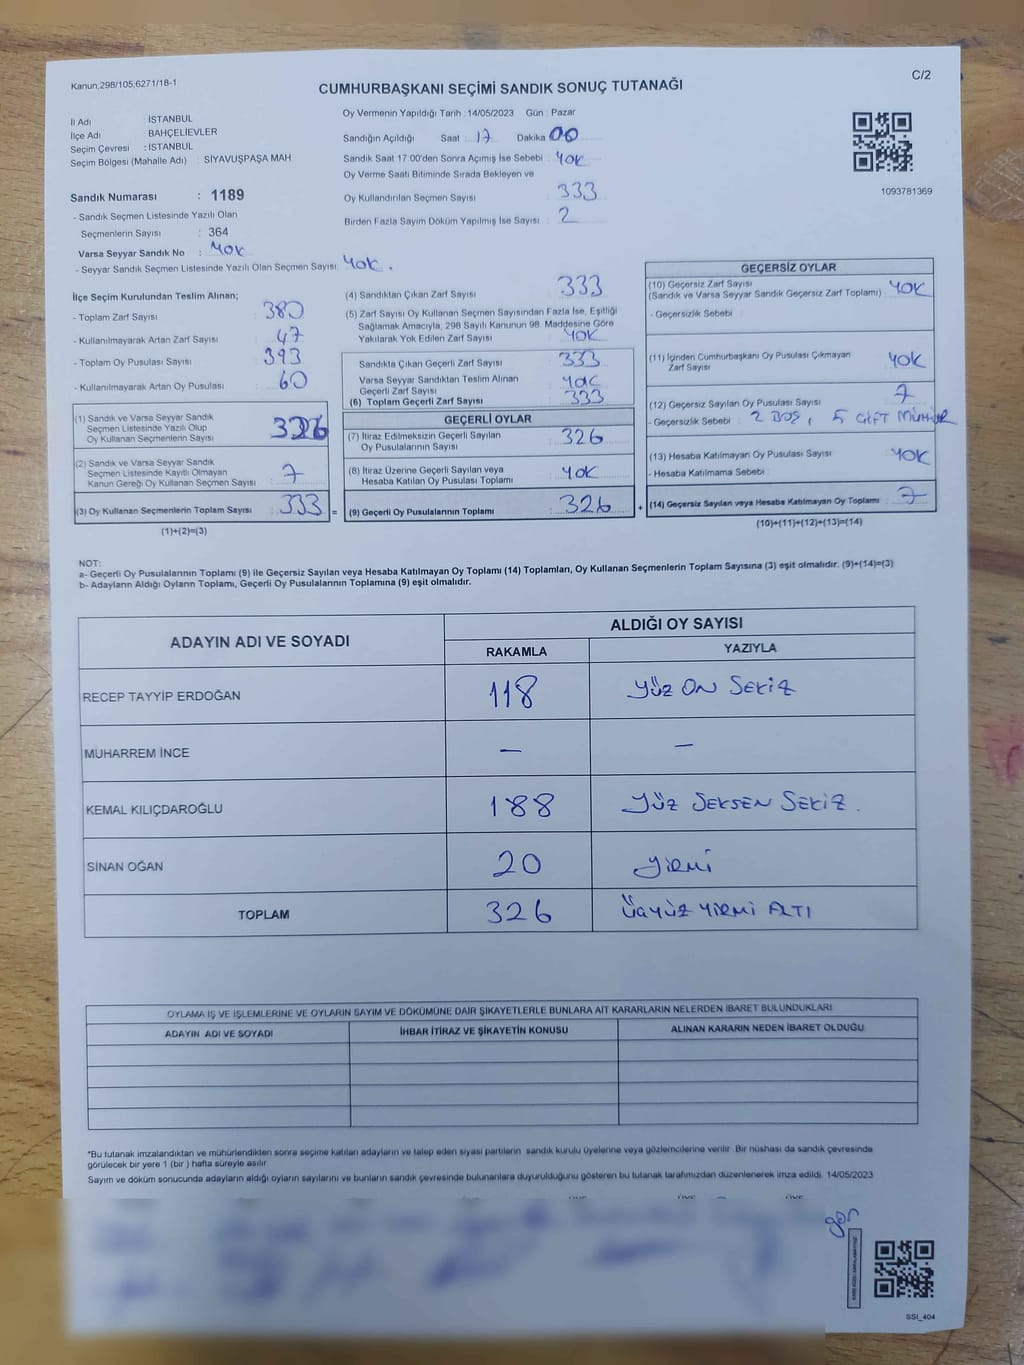 Kanun,298/105;6271/18-1
C/2
CUMHURBAŞKANI SEÇİMİ SANDIK SONUÇ TUTANAĞI
İl Adı : İSTANBUL
İlçe Adı : BAHÇELİEVLER
Seçim Çevresi : İSTANBUL
Seçim Bölgesi (Mahalle Adı) : SİYAVUŞPAŞA MAH
Sandık Numarası : 1189
- Sandık Seçmen Listesinde Yazılı Olan
Seçmenlerin Sayısı : 364
Varsa Seyyar Sandık No : YOK
- Seyyar Sandık Seçmen Listesinde Yazılı Olan Seçmen Sayısı: YOK.
Oy Vermenin Yapıldığı Tarih :14/05/2023 Gün : Pazar
Sandığın Açıldığı Saat : 17 Dakika 00
Sandık Saat 17:00'den Sonra Açımış İse Sebebi : YOK
Oy Verme Saati Bitiminde Sırada Bekleyen ve
Oy Kullandırılan Seçmen Sayısı : 333
Birden Fazla Sayım Döküm Yapılmış İse Sayısı : 2
1093781369
İlçe Seçim Kurulundan Teslim Alınan;
- Toplam Zarf Sayısı : 380
- Kullanılmayarak Artan Zarf Sayısı : 47
- Toplam Oy Pusulası Sayısı : 393
- Kullanılmayarak Artan Oy Pusulası : 60
(1) Sandık ve Varsa Seyyar Sandık
Seçmen Listesinde Yazılı Olup
Oy Kullanan Seçmenlerin Sayısı : 326
(2) Sandık ve Varsa Seyyar Sandık
Seçmen Listesinde Kayıtlı Olmayan
Kanun Gereği Oy Kullanan Seçmen Sayısı : 7
(3) Oy Kullanan Seçmenlerin Toplam Sayısı : 333 =
(1)+(2)=(3)
(4) Sandıktan Çıkan Zarf Sayısı : 333
(5) Zarf Sayısı Oy Kullanan Seçmen Sayısından Fazla İse, Eşitliği
Sağlamak Amacıyla, 298 Sayılı Kanunun 98. Maddesine Göre
Yakılarak Yok Edilen Zarf Sayısı : YOK
Sandıkta Çıkan Geçerli Zarf Sayısı : 333
Varsa Seyyar Sandıktan Teslim Alınan
Geçerli Zarf Sayısı : YOK
(6) Toplam Geçerli Zarf Sayısı : 333
GEÇERLİ OYLAR
(7) İtiraz Edilmeksizin Geçerli Sayılan
Oy Pusulalarının Sayısı : 326
(8) İtiraz Üzerine Geçerli Sayılan veya
Hesaba Katılan Oy Pusulası Toplamı : YOK
(9) Geçerli Oy Pusulalarının Toplamı : 326 +
GEÇERSİZ OYLAR
(10) Geçersiz Zarf Sayısı
(Sandık ve Varsa Seyyar Sandık Geçersiz Zarf Toplamı) : YOK
- Geçersizlik Sebebi :
(11) İçinden Cumhurbaşkanı Oy Pusulası Çıkmayan
Zarf Sayısı : YOK
(12) Geçersiz Sayılan Oy Pusulası Sayısı : 7
- Geçersizlik Sebebi : 2 BOŞ, 5 ÇİFT MÜHÜR
(13) Hesaba Katılmayan Oy Pusulası Sayısı : YOK
- Hesaba Katılmama Sebebi :
(14) Geçersiz Sayılan veya Hesaba Katılmayan Oy Toplamı : 7
(10)+(11)+(12)+(13)=(14)
NOT:
a- Geçerli Oy Pusulalarının Toplamı (9) ile Geçersiz Sayılan veya Hesaba Katılmayan Oy Toplamı (14) Toplamları, Oy Kullanan Seçmenlerin Toplam Sayısına (3) eşit olmalıdır. (9)+(14)=(3)
b- Adayların Aldığı Oyların Toplamı, Geçerli Oy Pusulalarının Toplamına (9) eşit olmalıdır.
ADAYIN ADI VE SOYADI
ALDIĞI OY SAYISI
RAKAMLA YAZIYLA
RECEP TAYYİP ERDOĞAN 118 YÜZ ON SEKİZ
MUHARREM İNCE — —
KEMAL KILIÇDAROĞLU 188 YÜZ SEKSEN SEKİZ.
SİNAN OĞAN 20 YİRMİ
TOPLAM 326 ÜÇYÜZ YİRMİ ALTI
OYLAMA İŞ VE İŞLEMLERİNE VE OYLARIN SAYIM VE DÖKÜMÜNE DAİR ŞİKAYETLERLE BUNLARA AİT KARARLARIN NELERDEN İBARET BULUNDUKLARI
ADAYIN ADI VE SOYADI İHBAR İTİRAZ VE ŞİKAYETİN KONUSU ALINAN KARARIN NEDEN İBARET OLDUĞU
*Bu tutanak imzalandıktan ve mühürlendikten sonra seçime katılan adayların ve talep eden siyasi partilerin sandık kurulu üyelerine veya gözlemcilerine verilir. Bir nüshası da sandık çevresinde
görülecek bir yere 1 (bir) hafta süreyle asılır.
Sayım ve döküm sonucunda adayların aldığı oyların sayılarını ve bunların sandık çevresinde bulunanlara duyurulduğunu gösteren bu tutanak tarafımızdan düzenlenerek imza edildi. 14/05/2023
SSI_404